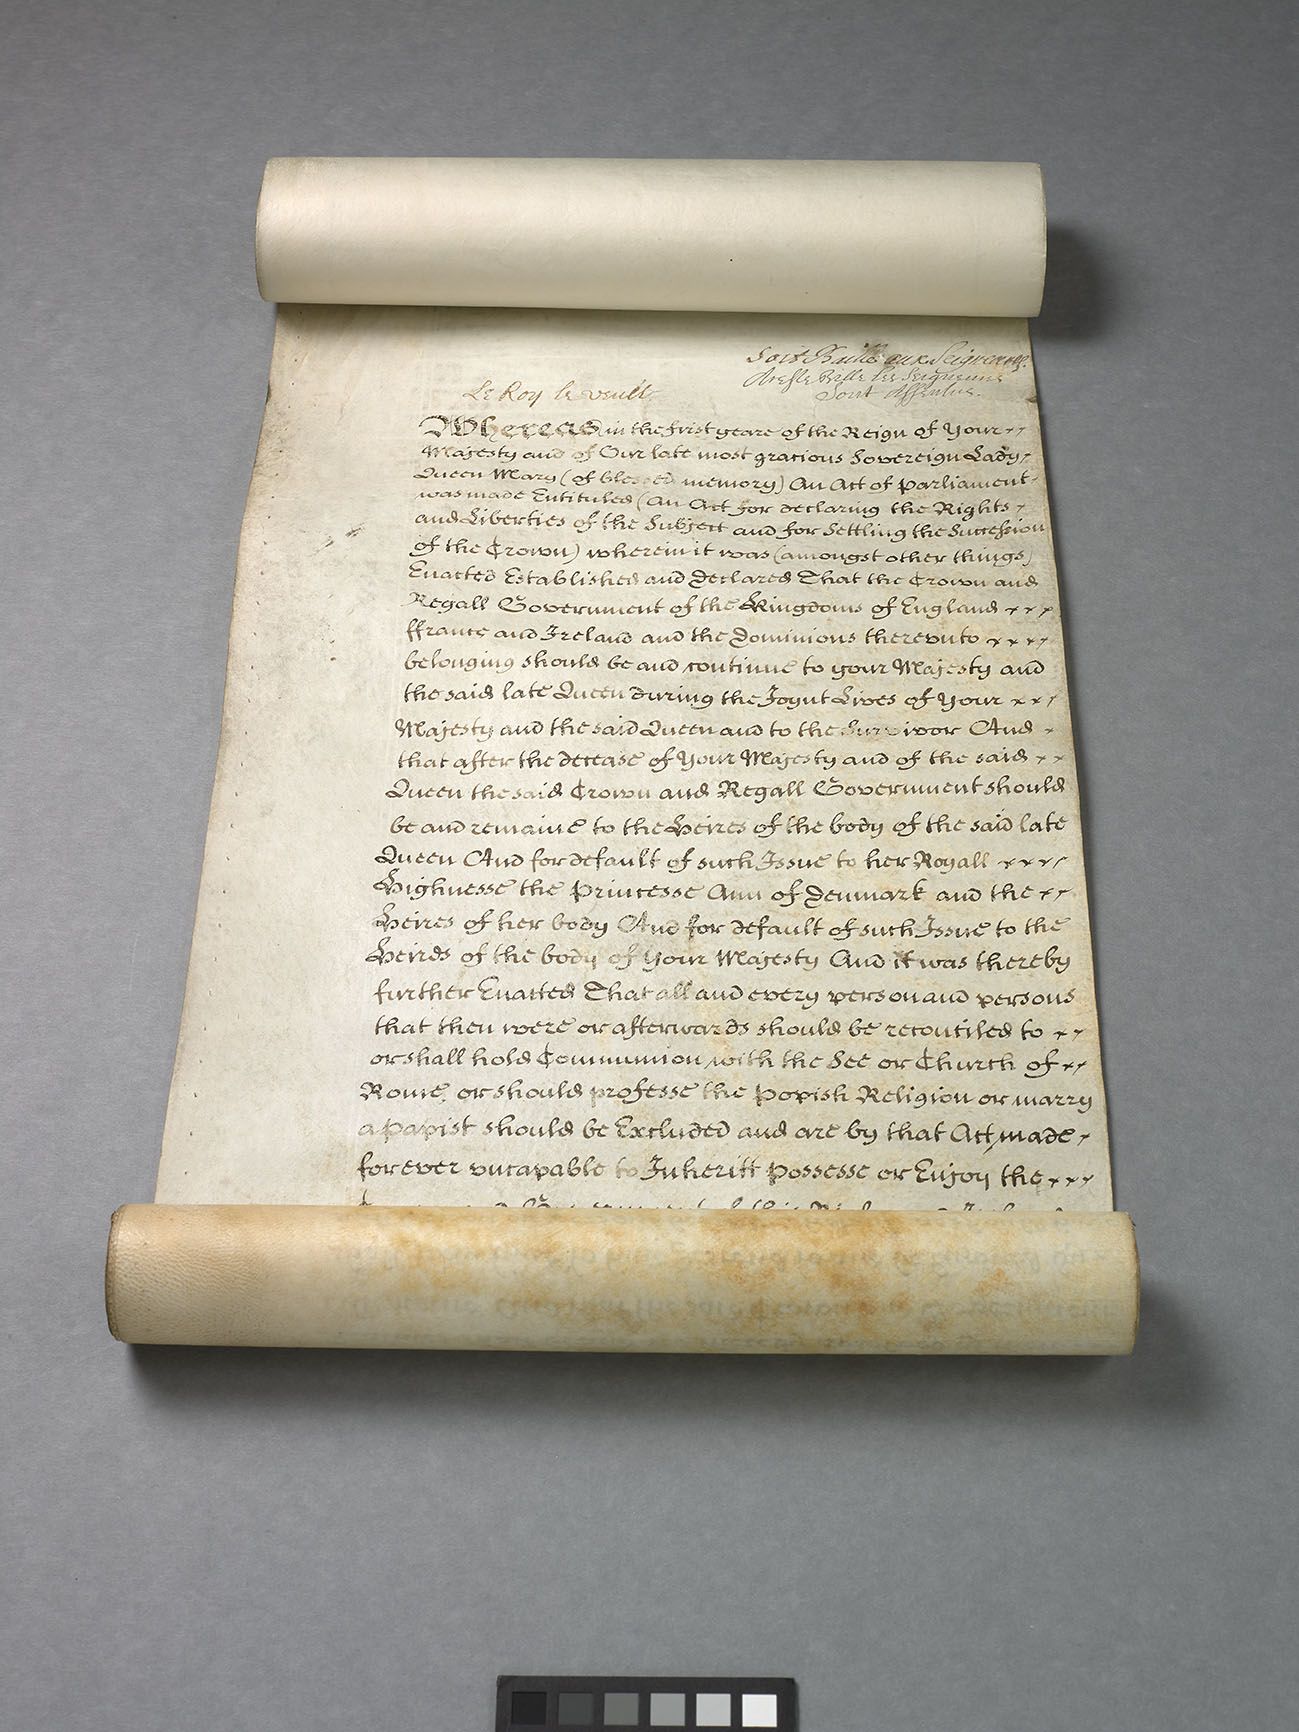 Soit Baillé aux Seigneurs
A cest Bille les Seigneurs
Sont Assentus.
Le Roy le veult.
Whereas in the first yeare of the Reign of Your
Majesty and of Our late most gracious Sovereign Lady
Queen Mary (of blessed memory) An Act of Parliament
was made Entituled (An Act for declaring the Rights
and Liberties of the Subject and for Settling the Succession
of the Crown) wherein it was (amongst other things)
Enacted Established and declared That the Crown and
Regall Government of the Kingdoms of England
ffrance and Ireland and the Dominions thereunto
belonging should be and continue to your Majesty and
the said late Queen during the Joynt Lives of Your
Majesty and the said Queen and to the Survivor And
that after the decease of Your Majesty and of the said
Queen the said Crown and Regall Government should
be and remaine to the Heires of the body of the said late
Queen And for default of such Issue to her Royall
Highnesse the Princesse Ann of Denmark and the
Heires of her body And for default of such Issue to the
Heires of the body of Your Majesty And it was thereby
further Enacted That all and every person and persons
that then were or afterwards should be reconciled to
or shall hold Communion with the See or Church of
Rome or should professe the Popish Religion or marry
a Papist should be Excluded and are by that Act made
for ever uncapable to Inheritt possesse or Enjoy the